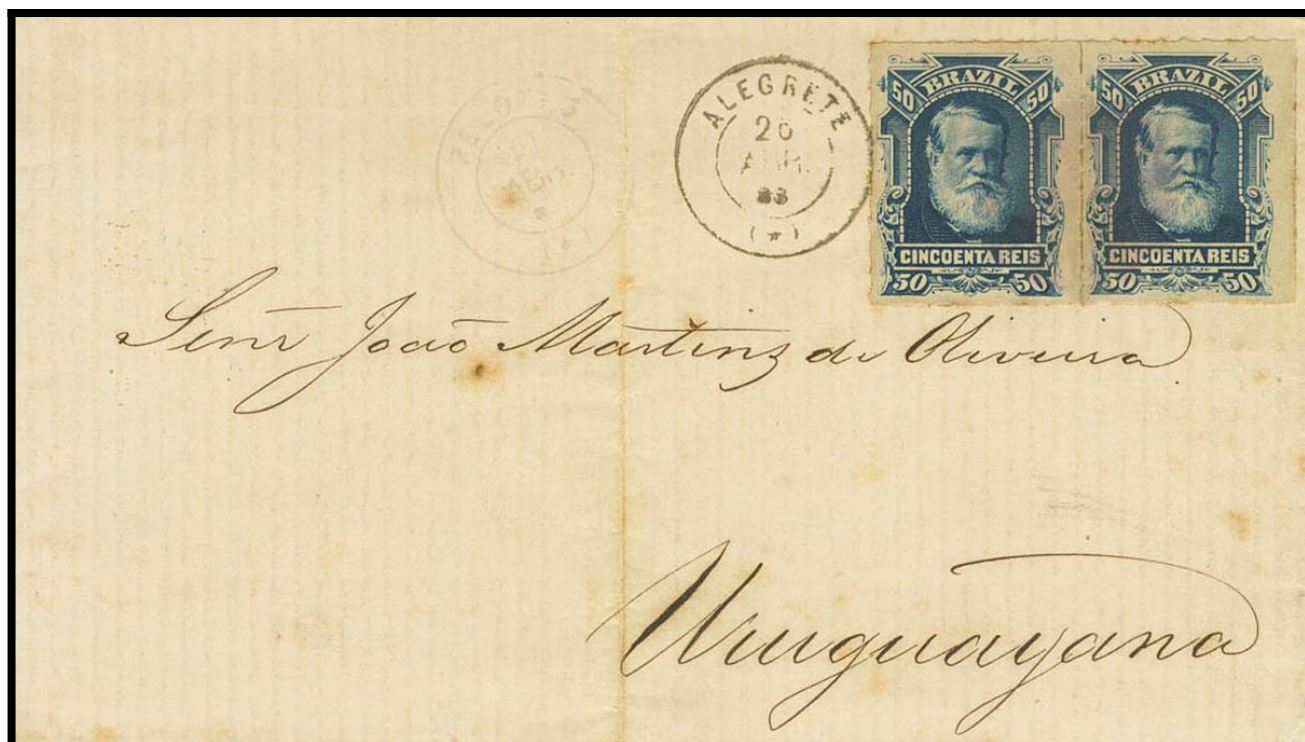 ALEGRETE
26
83
(*)
50 BRAZIL 50
CINCOENTA REIS
50 50
50 BRAZIL 50
CINCOENTA REIS
50 50
Senr João Martins de Oliveira
Uruguayana